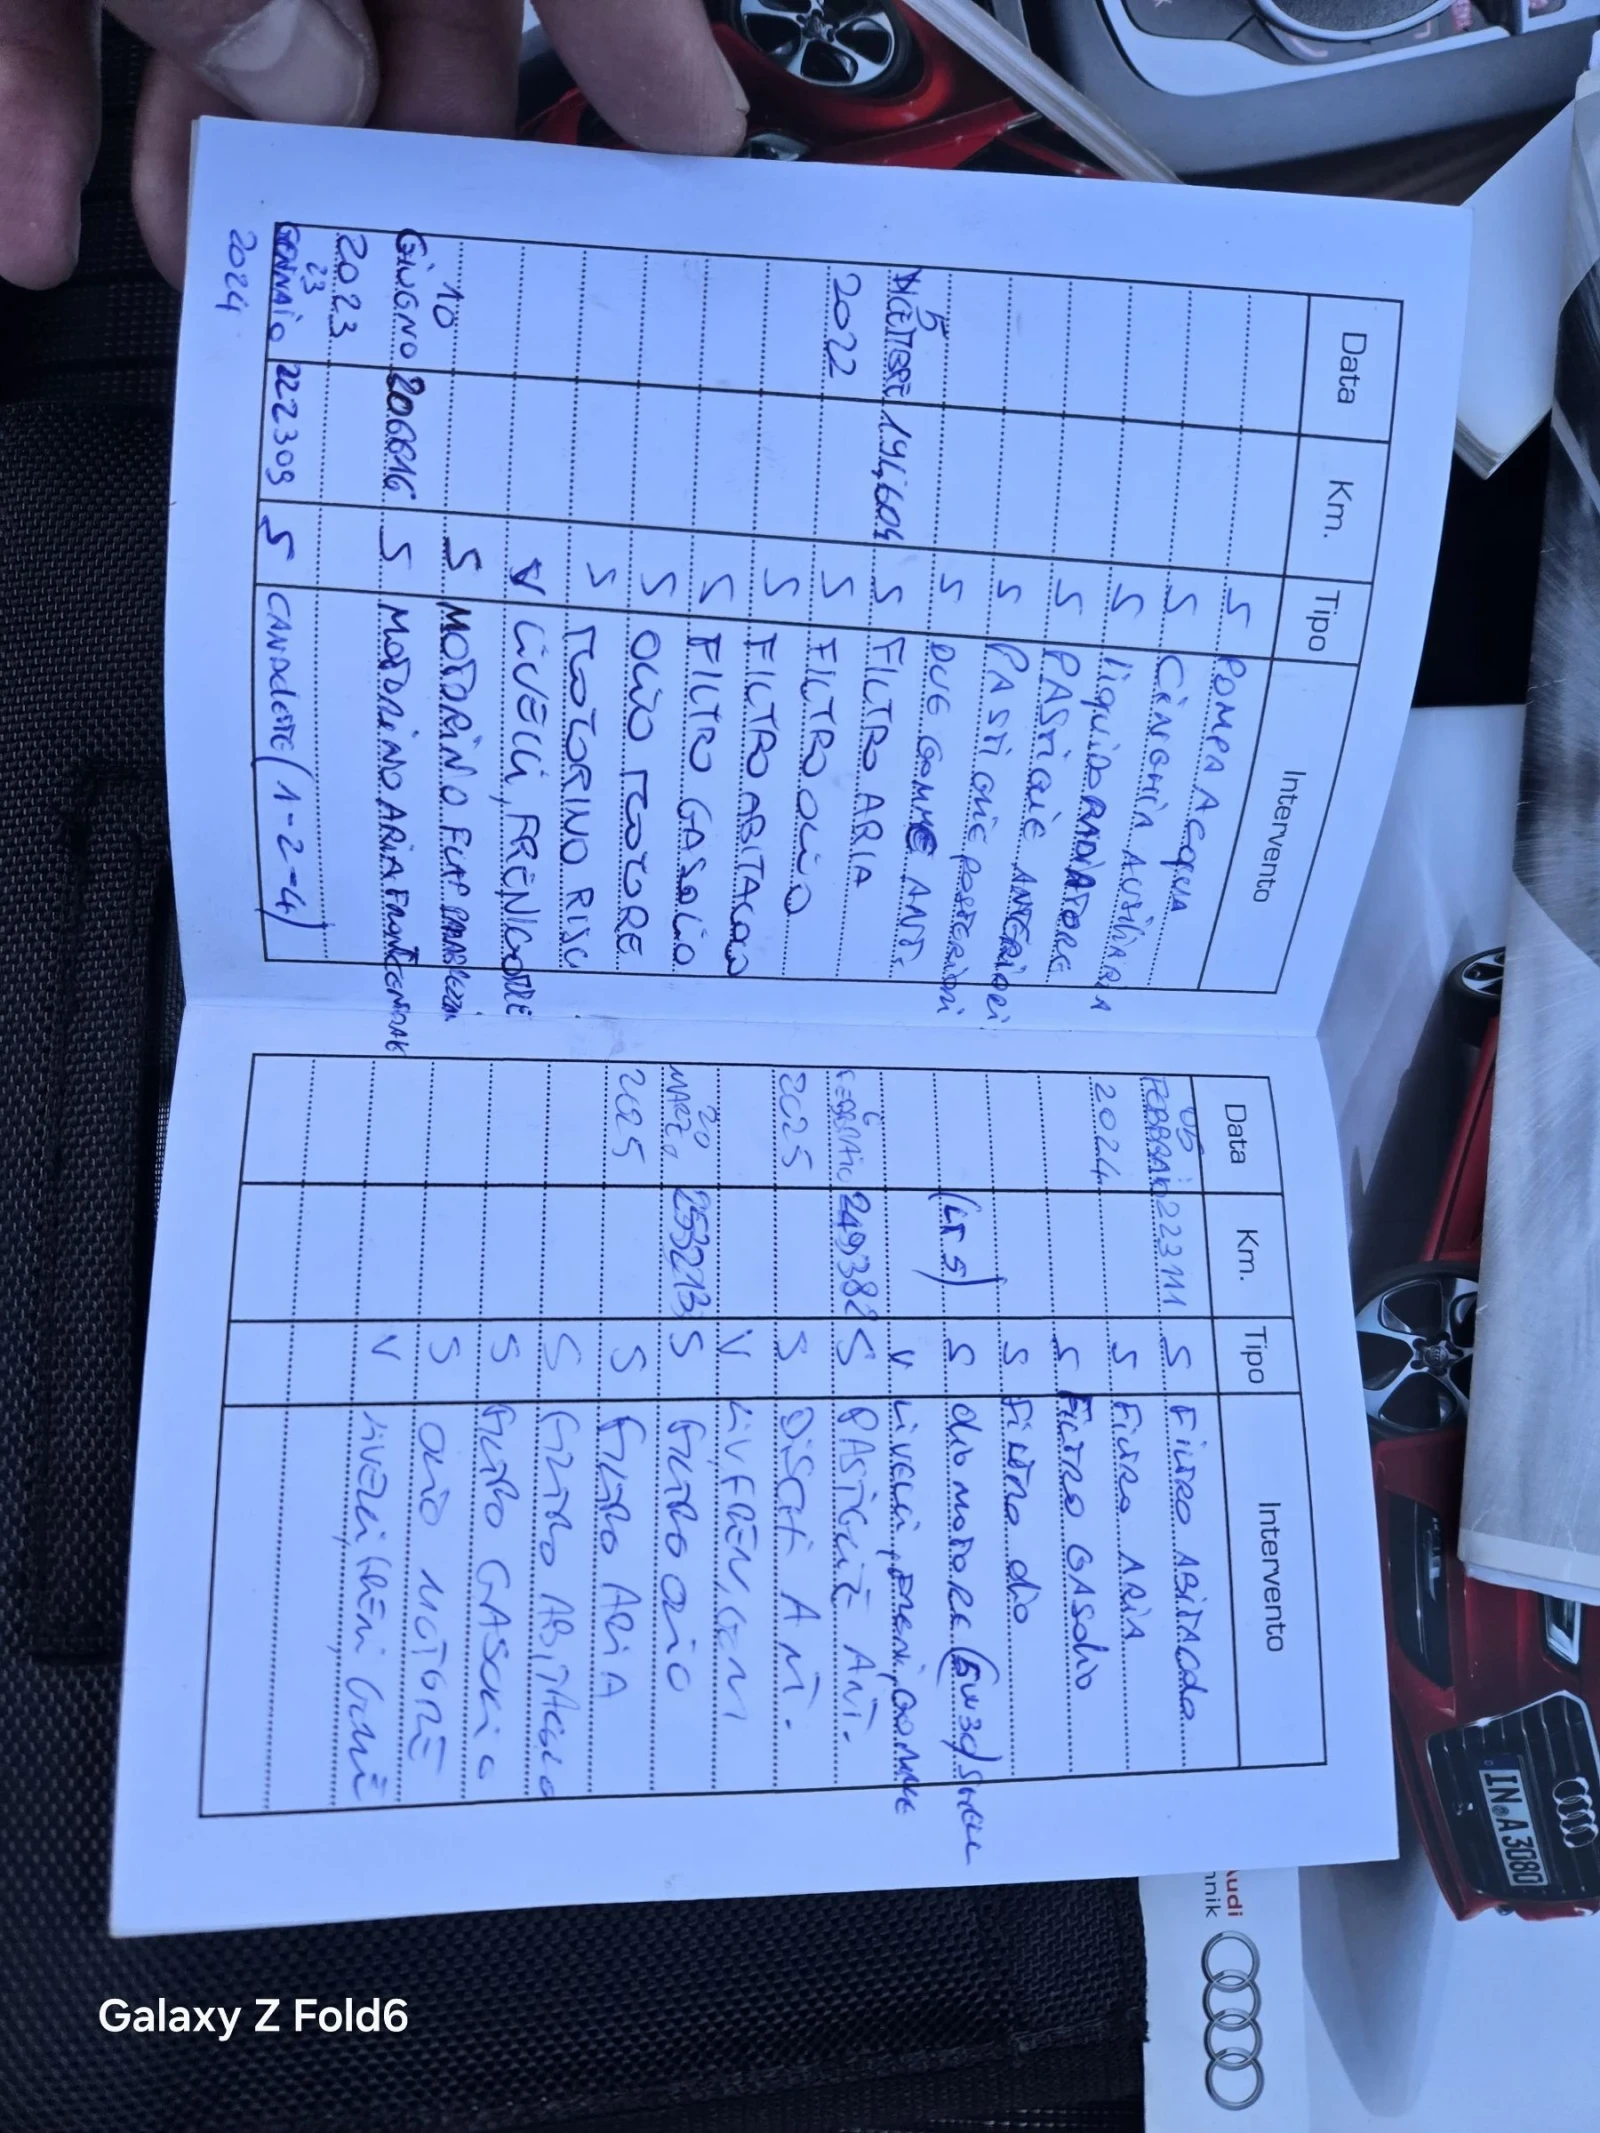 Data Km. Tipo Intervento
S POMPA ACQUA
S CINGHIA AUSILIARIA
S liquido RADIATORE
S PASTIGLIE ANTERIORI
S PASTIGLIE POSTERIORI
S DUE GOMME ANT.
5 DICEMBRE 194604 S FILTRO ARIA
2022 S FILTRO OLIO
S FILTRO ABITACOLO
S FILTRO GASOLIO
S OLIO MOTORE
S MOTORINO RISC
V LIVELLI, FRENI, GOMME
S MOTORINO FLAP
10 GIUGNO 206616 S MOTORINO ARIA
2023
23 GENNAIO 222309 S CANDELETTE (1-2-4)
2024
Data Km. Tipo Intervento
05 FEBBRAIO 223111 S FILTRO ABITACOLO
2024 S FILTRO ARIA
S FILTRO GASOLIO
S Filtro olio
(LT 5) S olio motore (5W30) SHELL
V LIVELLI, FRENI, GOMME
6 FEBBRAIO 249382 S PASTIGLIE ANT.
2025 S DISCHI ANT.
V LIV, FREN, GOM
20 MARZO 253213 S FILTRO OLIO
2025 S FILTRO ARIA
S FILTRO ABITACOLO
S FILTRO GASOLIO
S OLIO MOTORE
V LIVELLI, FRENI, GOMME
IN A 3080
Audi
hnik
Galaxy Z Fold6